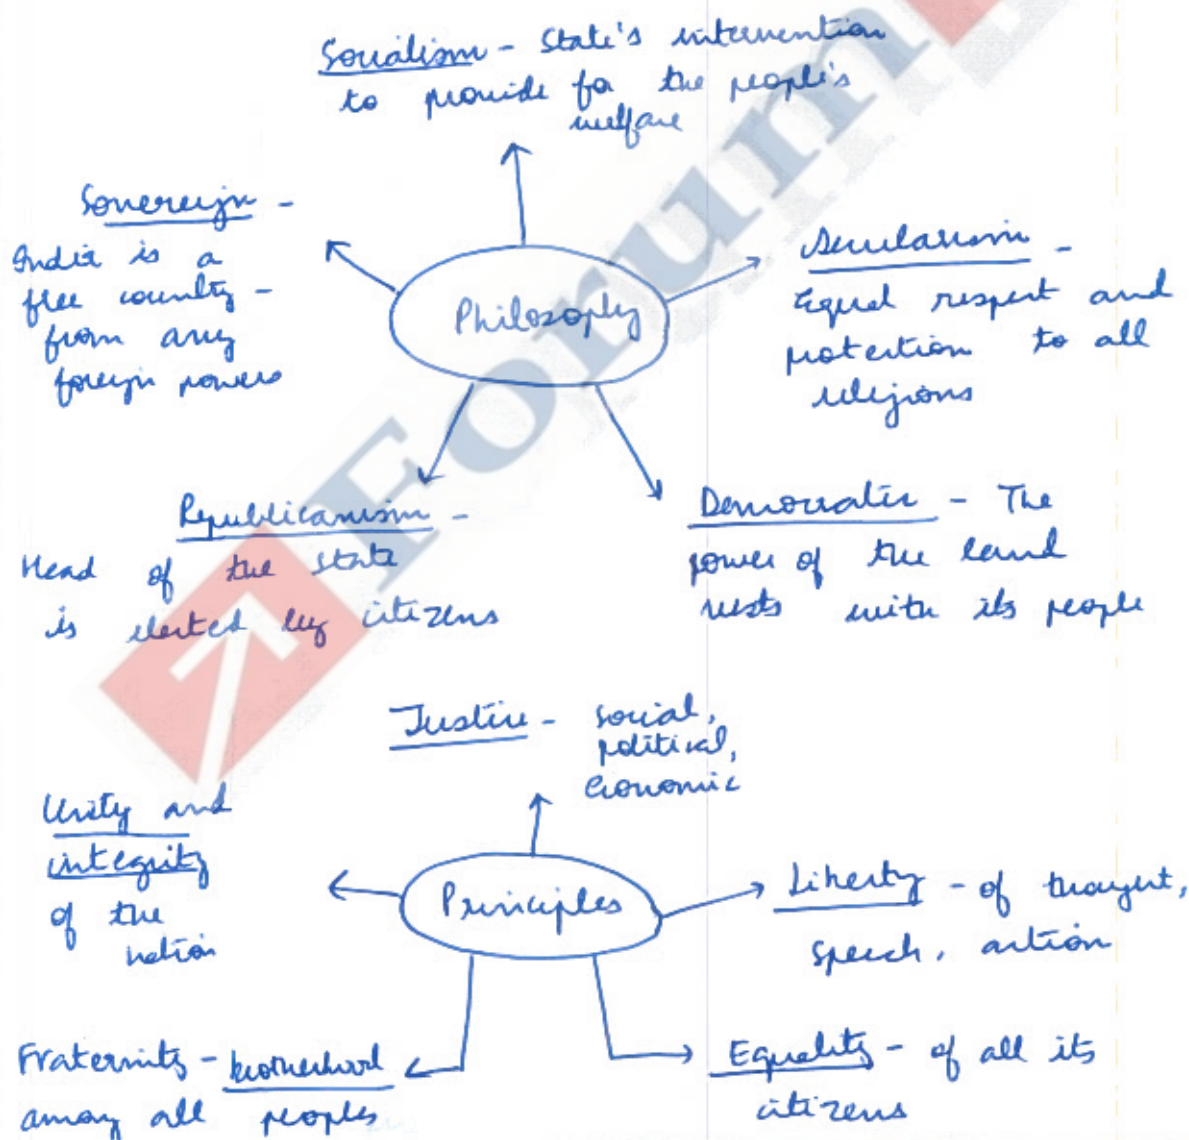 Socialism - State's intervention
to provide for the people's
welfare
Sovereign -
India is a
free country -
from any
foreign powers
Philosophy
Secularism -
Equal respect and
protection to all
religions
Republicanism -
Head of the state
is elected by citizens
Democratic - The
power of the land
rests with its people
Justice - social,
political,
economic
Unity and
integrity
of the
nation
Principles
Liberty - of thought,
speech, action
Fraternity - brotherhood
among all peoples
Equality - of all its
citizens
Forum